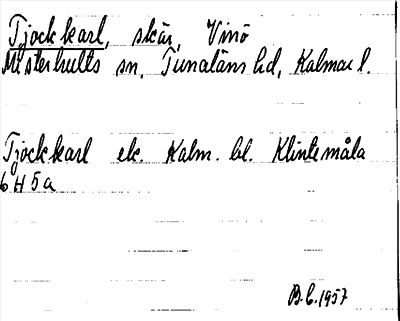 Tjockkarl, skär, Vinö
Misterhults sn, Tunaläns hd, Kalmar l.
Tjockkarl ek. Kalm. bl. Klintemåla
6 H 5 a
B.C. 1957